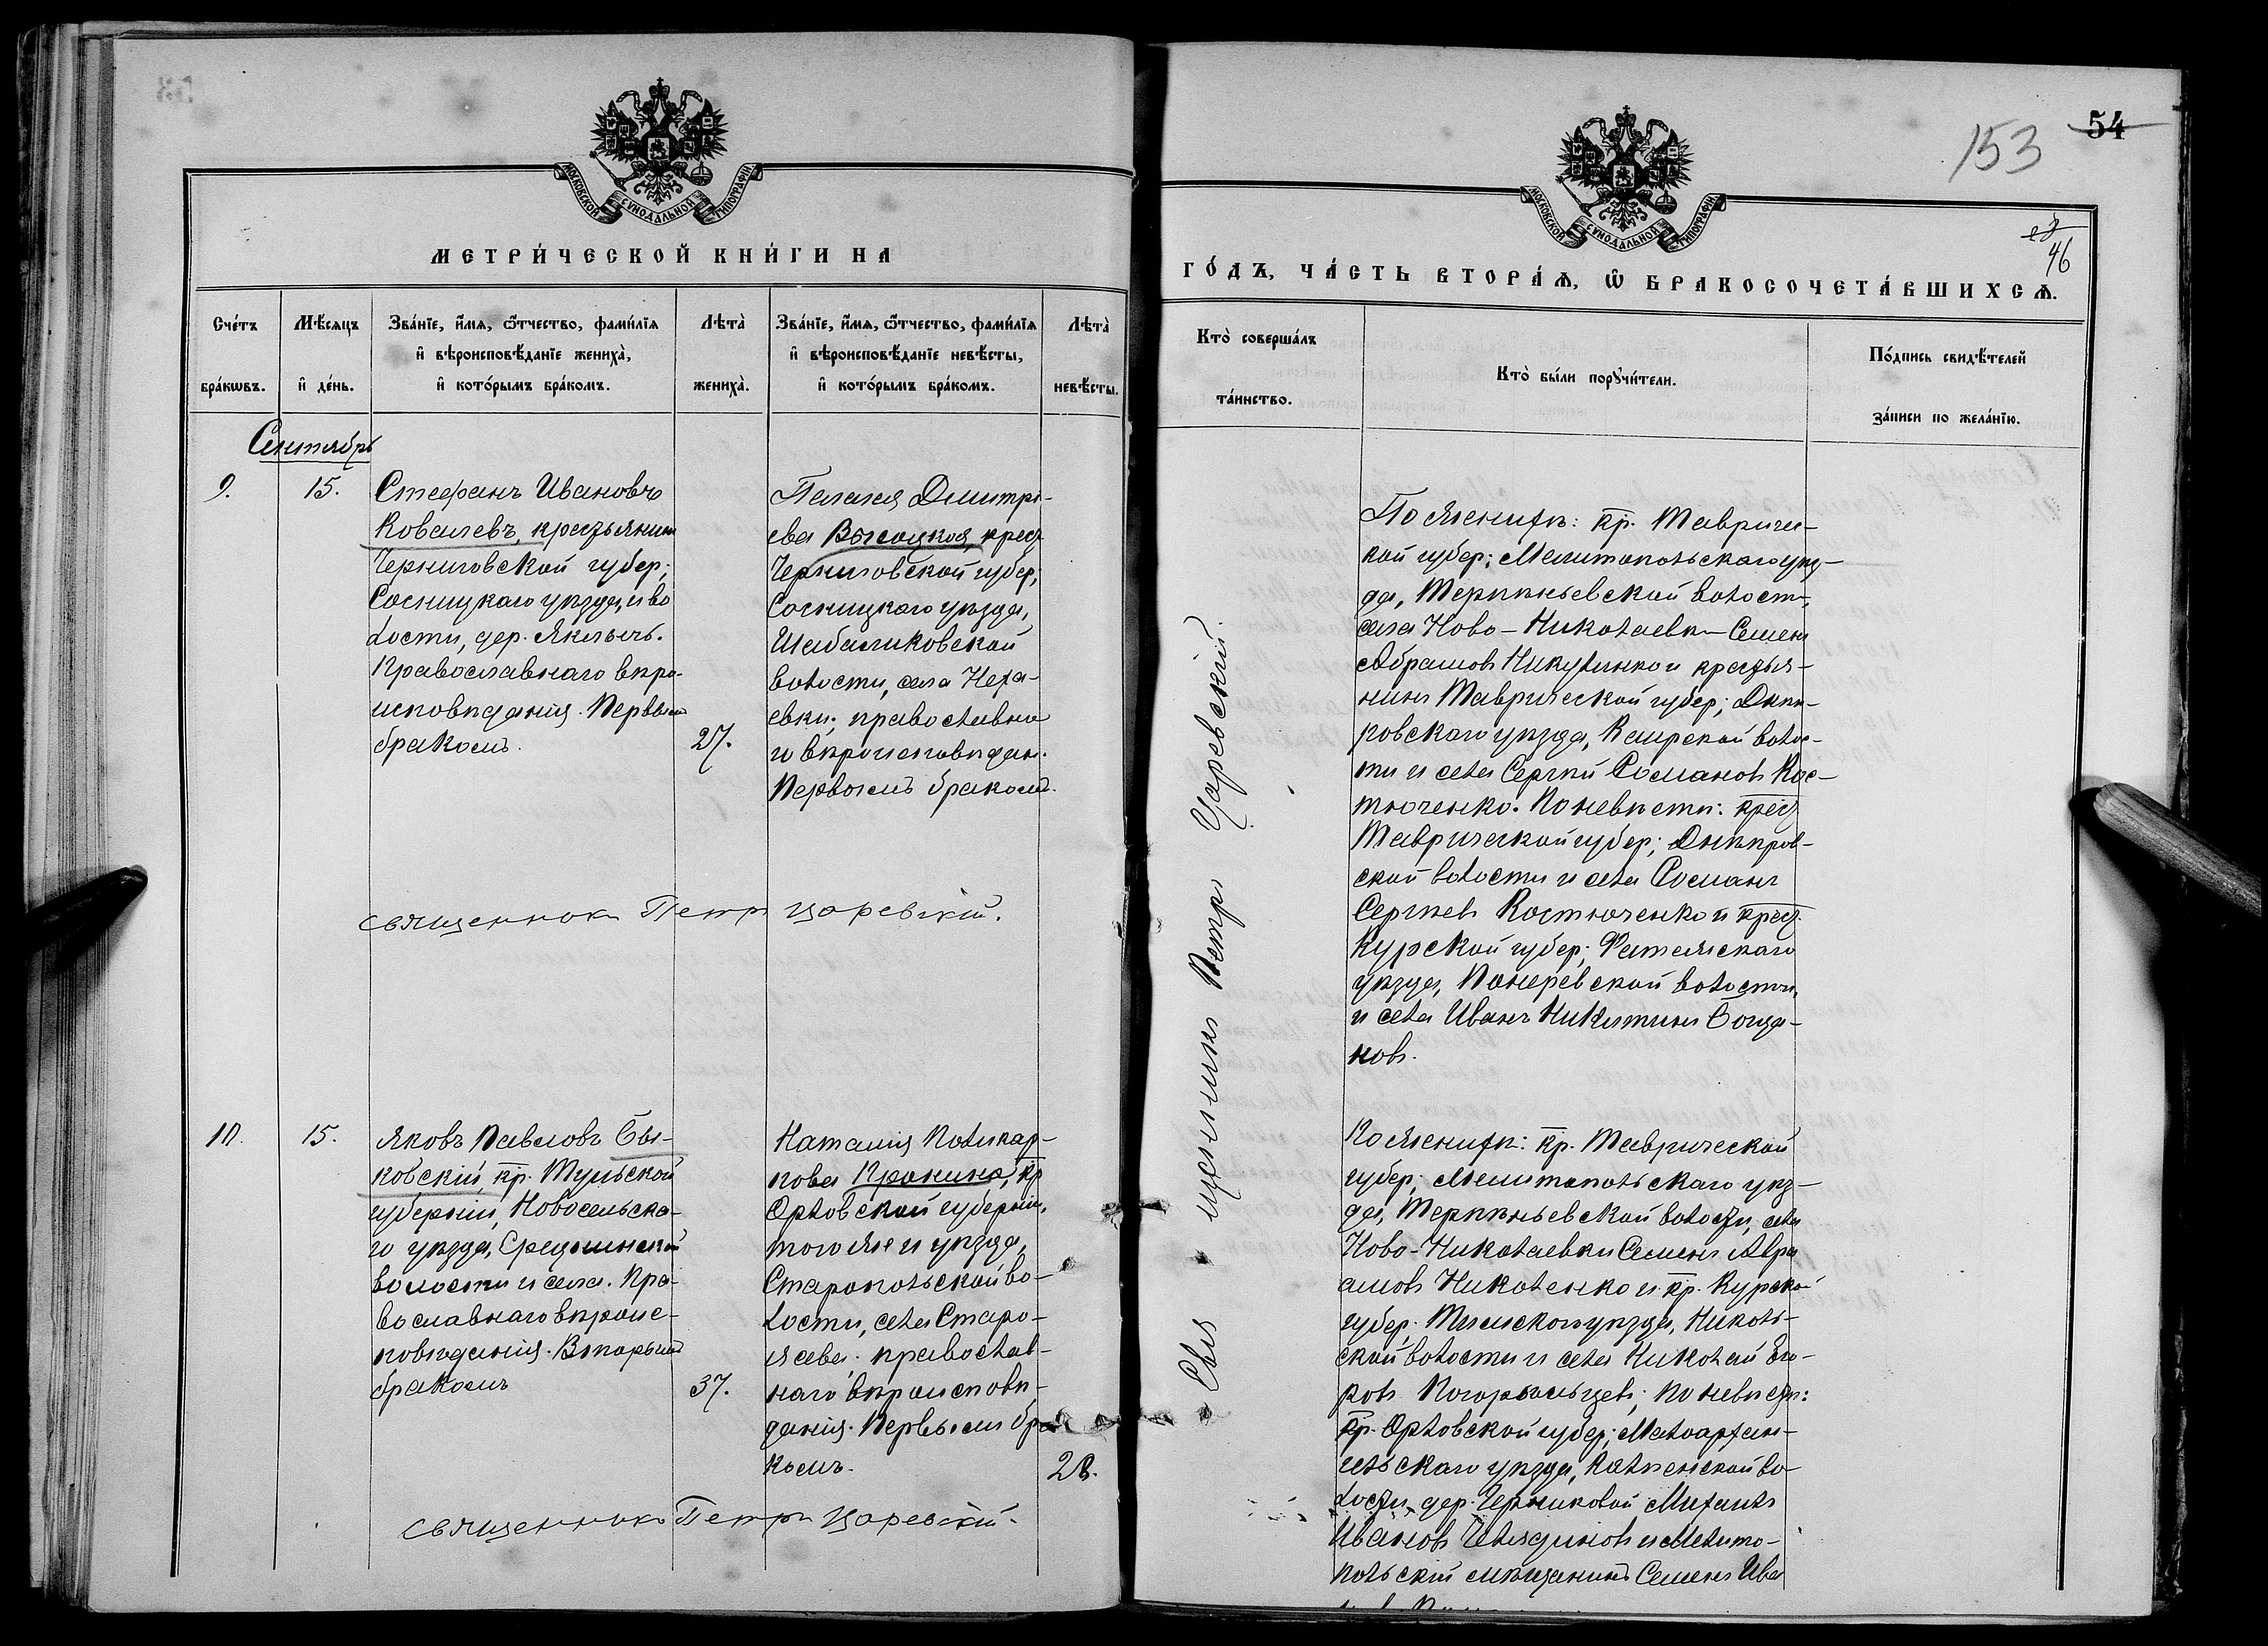 МОСКОВСКОЙ СѴНОДАЛЬНОЙ ТИПОГРАФІИ.
МЕТРИ́ЧЕСКОЙ КНИ́ГИ НА
Сче́тъ бра́кѡвъ.
Мѣ́сяцъ и҆ де́нь.
Зва́нїе, и҆́мѧ, ѻ҆́тчество, фами́лїѧ
и҆ вѣроисповѣ́данїе жениха̀,
и҆ кото́рымъ бра́комъ.
Лѣта̀ жениха̀.
Зва́нїе, и҆́мѧ, ѻ҆́тчество, фами́лїѧ
и҆ вѣроисповѣ́данїе невѣ́сты,
и҆ кото́рымъ бра́комъ.
Лѣта̀ невѣ́сты.
Сентябрь
9.
15.
Стефанъ Ивановъ
Ковалевъ, крестьянинъ
Черниговской губер;
Сосницкаго уѣзда, и во
лости, дер.
Православнаго вѣро-
исповѣданія. Первымъ
бракомъ.
27.
Пелагея Дмитрі-
ева Высоцкая, крест
Черниговской губер;
Сосницкаго уѣзда,
Шабалиновской
волости, села Неха-
евки; православна
го вѣроисповѣдан.
Первымъ бракомъ.
священникъ Петръ Царевскій.
10.
15.
Яковъ Павловъ Бы-
ковскій, кр. Тульской
губерніи, Новосельска-
го уѣзда,
волости и села. Пра-
вославнаго вѣроис-
повѣданія. Вторымъ
бракомъ
37.
Наталія Поликар-
пова Пронина, кр
Орловской губерніи,
того же и уѣзда,
Старопольской во-
лости, села Старо-
православ-
наго вѣроисповѣ-
данія. Первымъ бра
комъ.
28.
священникъ Петръ Царевскій.
54
153
46
МОСКОВСКОЙ СѴНОДАЛЬНОЙ ТИПОГРАФІИ.
ГО́ДЪ, ЧА́СТЬ ВТОРА́Ѧ, Ѽ БРАКОСОЧЕТА́ВШИХСѦ.
Кто̀ соверша́лъ та́инство.
Кто̀ бы́ли порꙋчи́тели.
По́дпись свидѣ́телей за́писи по жела́нїю.
Священникъ Петръ Царевскій.
По женихѣ: кр. Тавричес-
кой губер; Мелитопольскаго уѣз-
да, Терпѣньевской волости,
села Ново-Николаевки Семенъ
Абрамовъ и крестья-
нинъ Таврической губер; Днѣп-
ровскаго уѣзда, Каирской волос-
ти и села Сергѣй Романовъ Кос-
тюченко. По невѣсти: крест
Таврической губер; Днѣпров-
ской волости и села Романъ
Сергѣевъ Костюченко и крест.
Курской губер; Фатежскаго
уѣзда, Поныревской волости,
и села Иванъ Никитинъ Богда-
новъ.
По женихѣ: кр. Таврической
губер; Мелитопольскаго уѣз-
да, Терпѣньевской волости, села
Ново-Николаевки Семенъ Авра
амовъ Николенко и кр. Курской
губер; Тимскаго уѣзда, Николь-
ской волости и села Николай Его-
ровъ Погорѣльцевъ; по невѣсти:
кр. Орловской губер; Малоархан-
гельскаго уѣзда, во-
лости, дер. Черниковой Михаилъ
Ивановъ и Мелито-
польскій мѣщанинъ Семенъ Ива